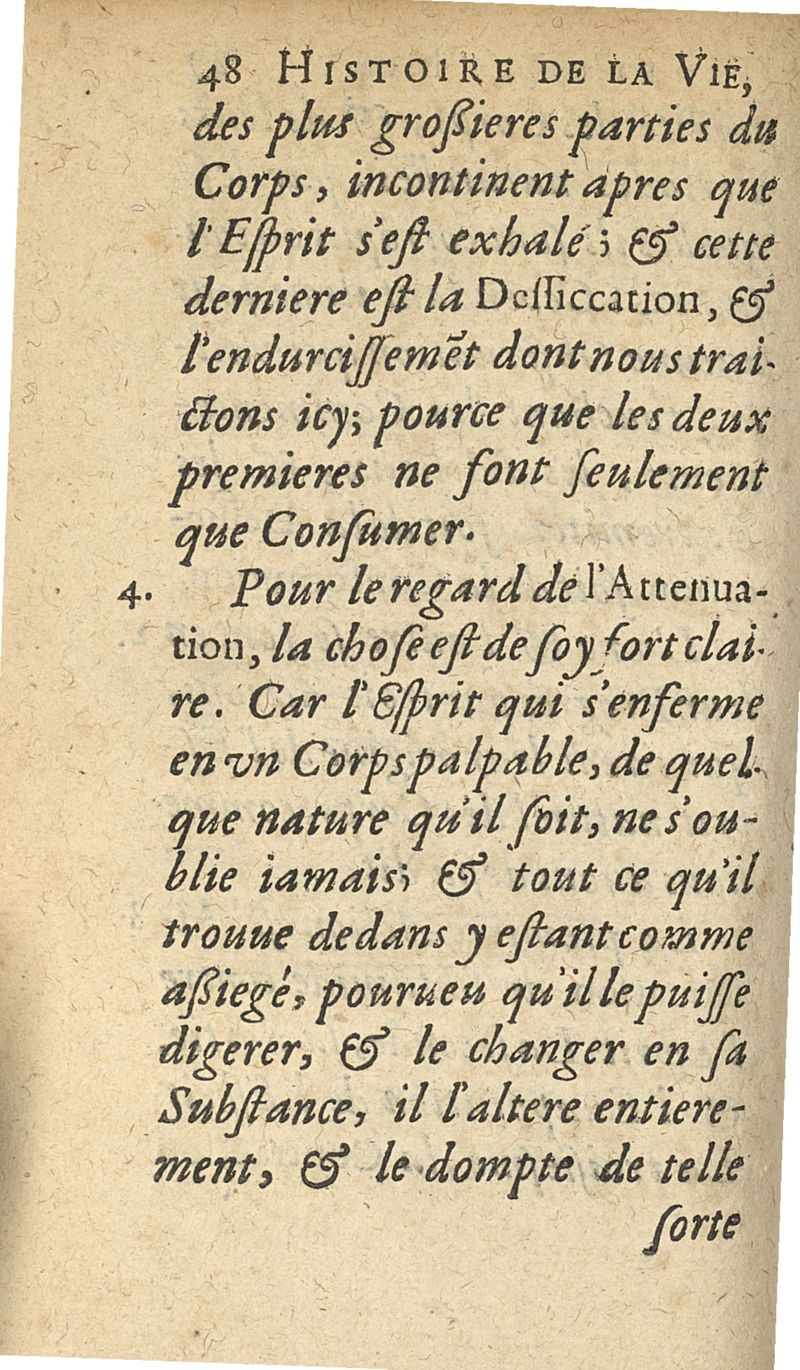 48 HISTOIRE DE LA VIE,
des plus großieres parties du
Corps, incontinent apres que
l'Eſprit s'eſt exhalé; & cette
derniere eſt la Deſſiccation, &
l'endurciſſemẽt dont nous trai-
ctons icy; pource que les deux
premieres ne font ſeulement
que Conſumer.
4. Pour le regard de l'Attenua-
tion, la choſe eſt de ſoy fort clai-
re. Car l'Eſprit qui s'enferme
en vn Corps palpable, de quel-
que nature qu'il ſoit, ne s'ou-
blie iamais; & tout ce qu'il
trouue dedans y eſtant comme
aßiegé, pourueu qu'il le puiſſe
digerer, & le changer en ſa
Subſtance, il l'altere entiere-
ment, & le dompte de telle
ſorte